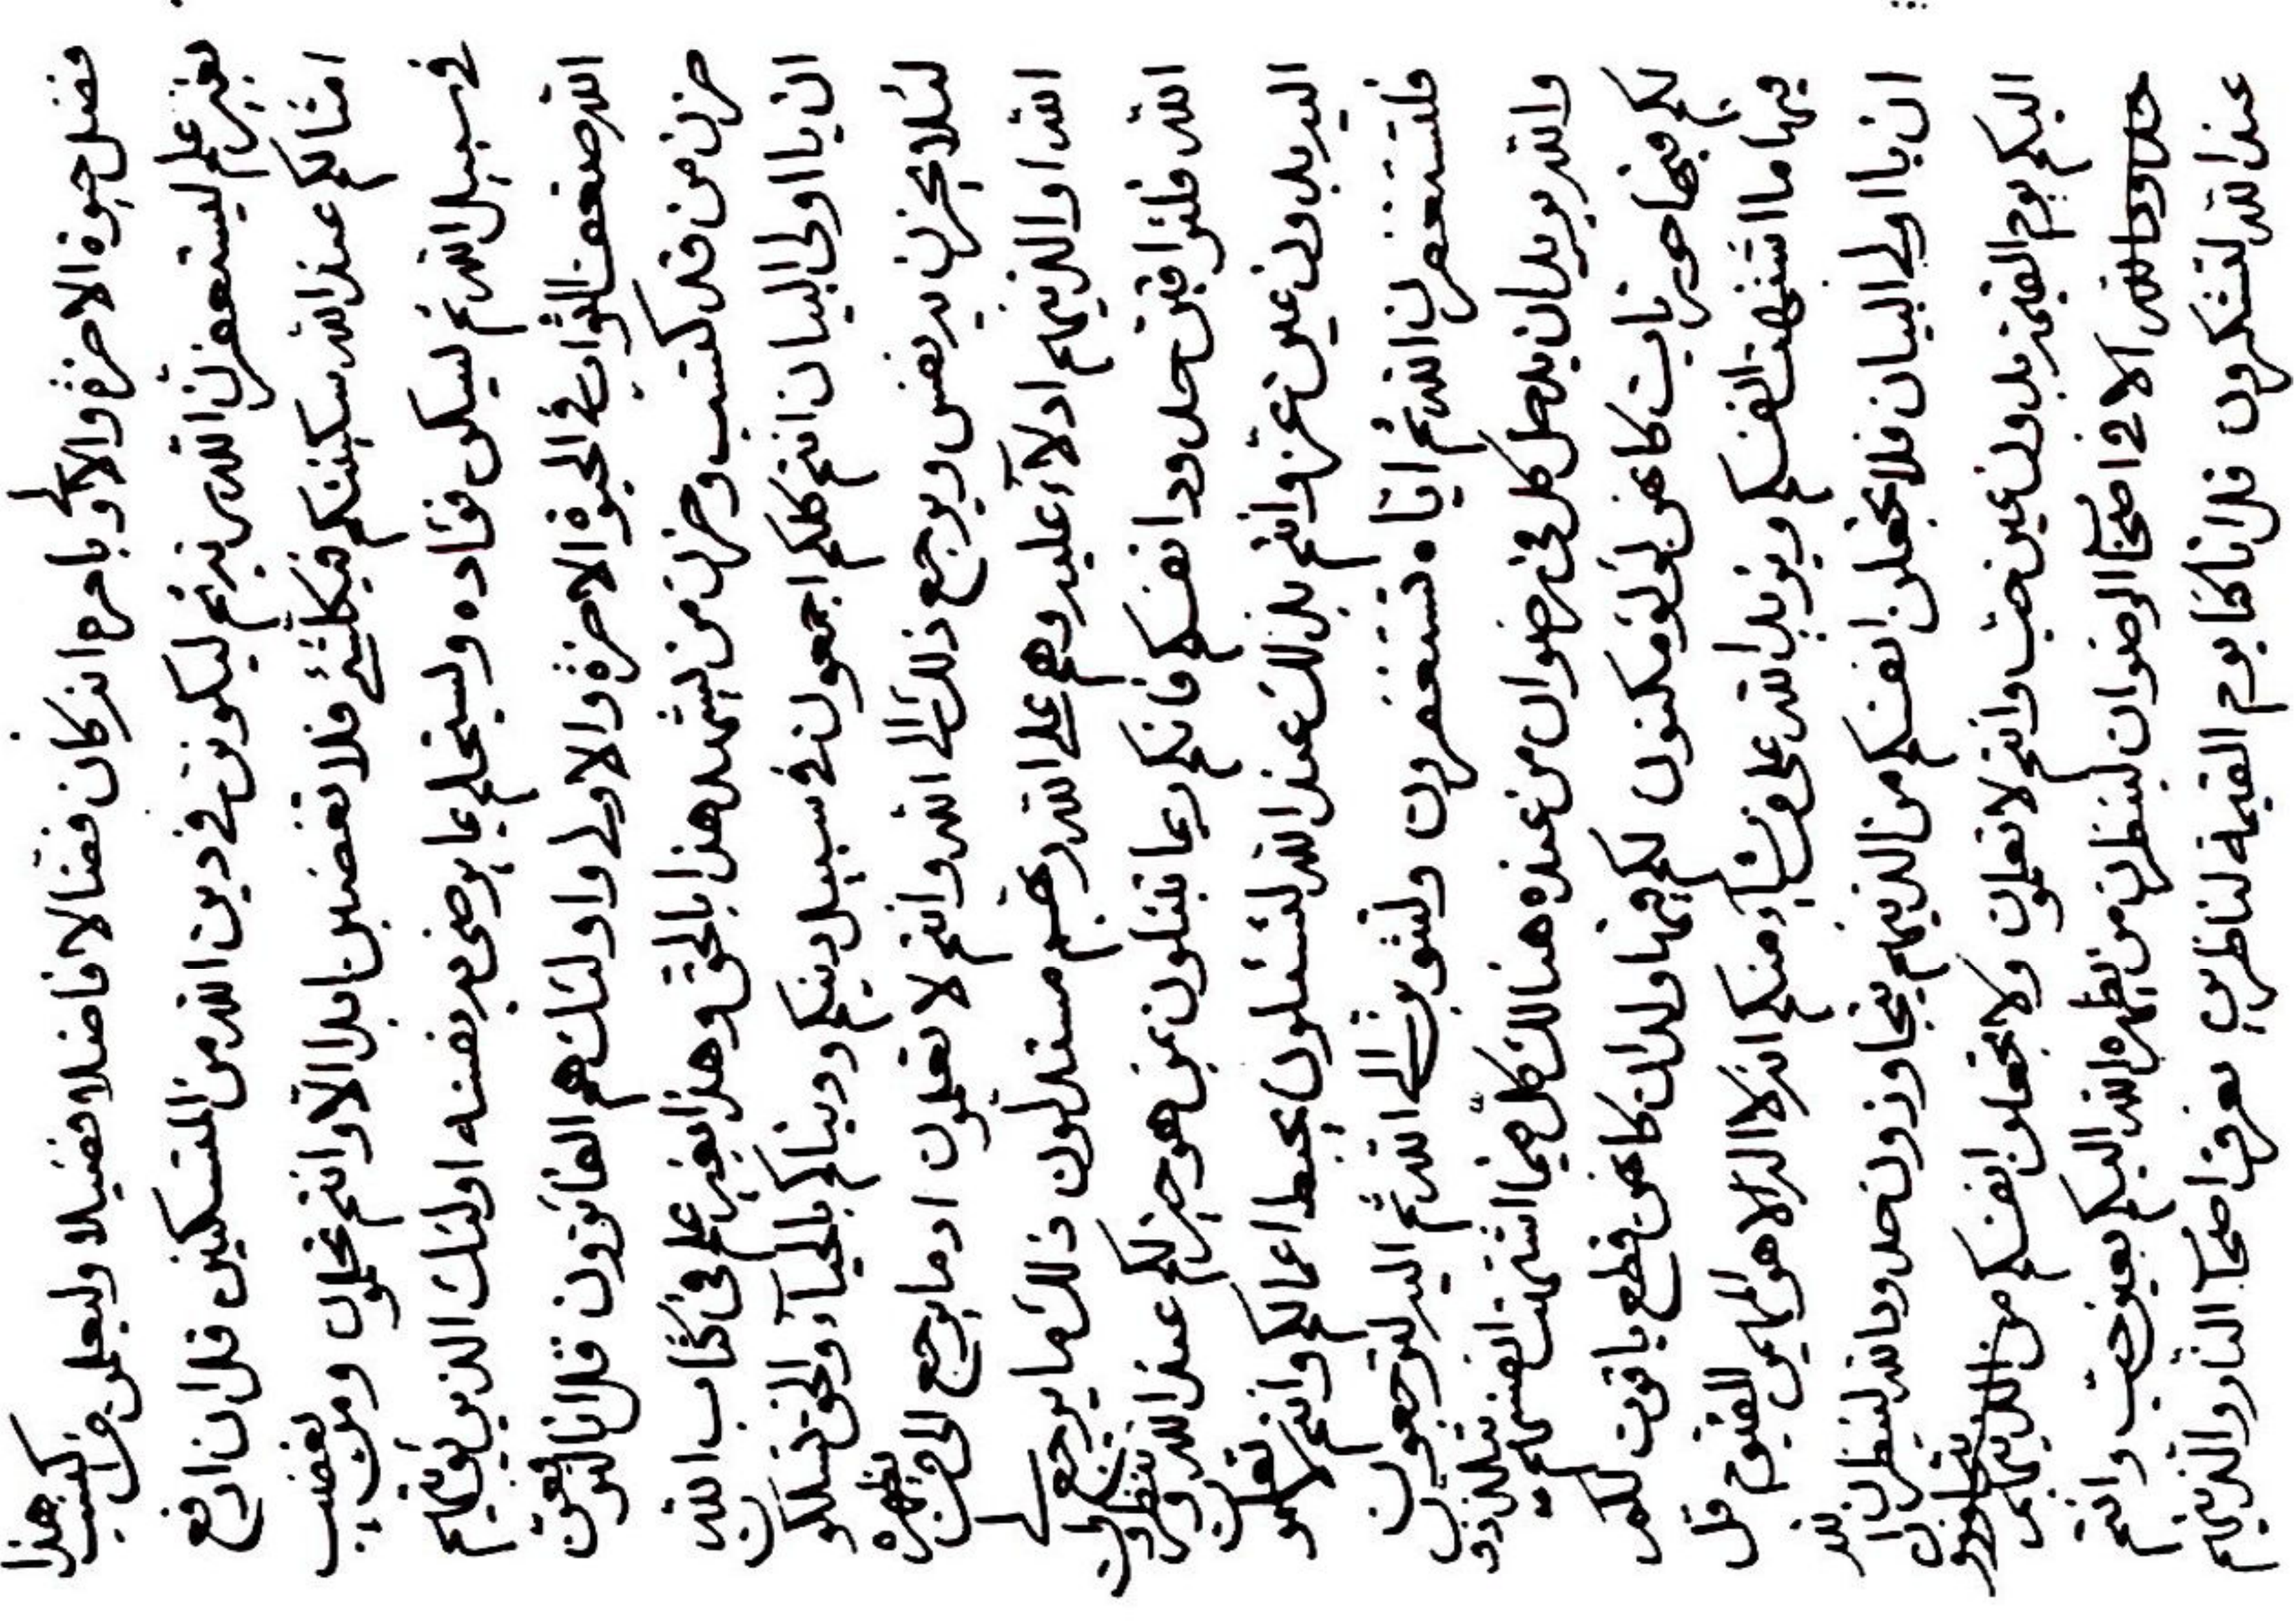 فضل حيوة الاخرة والاولى بامره انه كان فضالا فاضلا فضيلا وليعلمن من اكتسب هذا
بغير علم ليستغفرن الله ربه ثم ليكونن في دين الله من المتسكنين قل ان ارفع
امثالكم عند الله سكينتكم فيكلشئ فلا تغضبن ابدا الا وانتم تحلمون ومن يغضب
في سبيل الله ثم ليسكن فؤاده وليستحلم عما يرضى به نفسه اولئك الذين يؤتيهم
الله ضعف الثواب في الحيوة الاخرة والاولى واولئك هم الفائزون قل انا لنفرقن
حزن من قد كتب وحزن من يشهد هذا بالحق وهذا بغير علم في كتاب الله
ان يا اولى البيان انتم كلكم اجمعون في سبيل دينكم ودنياكم بالحياء والحق تسلكون
لئلا يحزن به نفس ويرجع ذلك الى الله وانتم لا تعلمون اد ما يرجع الى من يظهره
الله او الذينهم ادلاء عليه وهم على الله ربهم مستدلون ذلك ما يرجع الى
الله فلتراقبن حدود انفسكم فانكم ربما تسئلون عمن هو خير لكم عند الله وتنظرون
اليه بدون عين عز وانتم بذلك عند الله لتسئلون يحبط اعمالكم وانتم لا تعلمون
فلتستغفرن الله ثم اياه تستغفرون ولتتوبن الى الله ثم اليه لترجعون
والله يريد ان يدخل كل في رضوان من عنده هنالك كل فيما اشتهت انفسهم يتلذذون
لكم فيها حوريات كاهن لؤلؤ مكنون لكم فيها ولدان كاهن قطع ياقوت لكم
فيها ما اشتهت انفسكم ويزيد الله على من يشاء منكم انه لا اله الا هو المهيمن القيوم قل
ان يا اولى البيان فلا تجعلن انفسكم من الذينهم يتجاوزون حدود الله لينظرن الله
اليكم يوم القيمة بدون عين حب وانتم لا تعلمون ولا تجعلن انفسكم من الذينهم يتجاوزون
حدود الله الا في اصحاب الرضوان لينظرن من يظهره الله اليكم بعين حب وانتم
عند الله لتشكرون قل انا كنا يوم القيمة لناظرين نعرفن اصحاب النار والذينهم